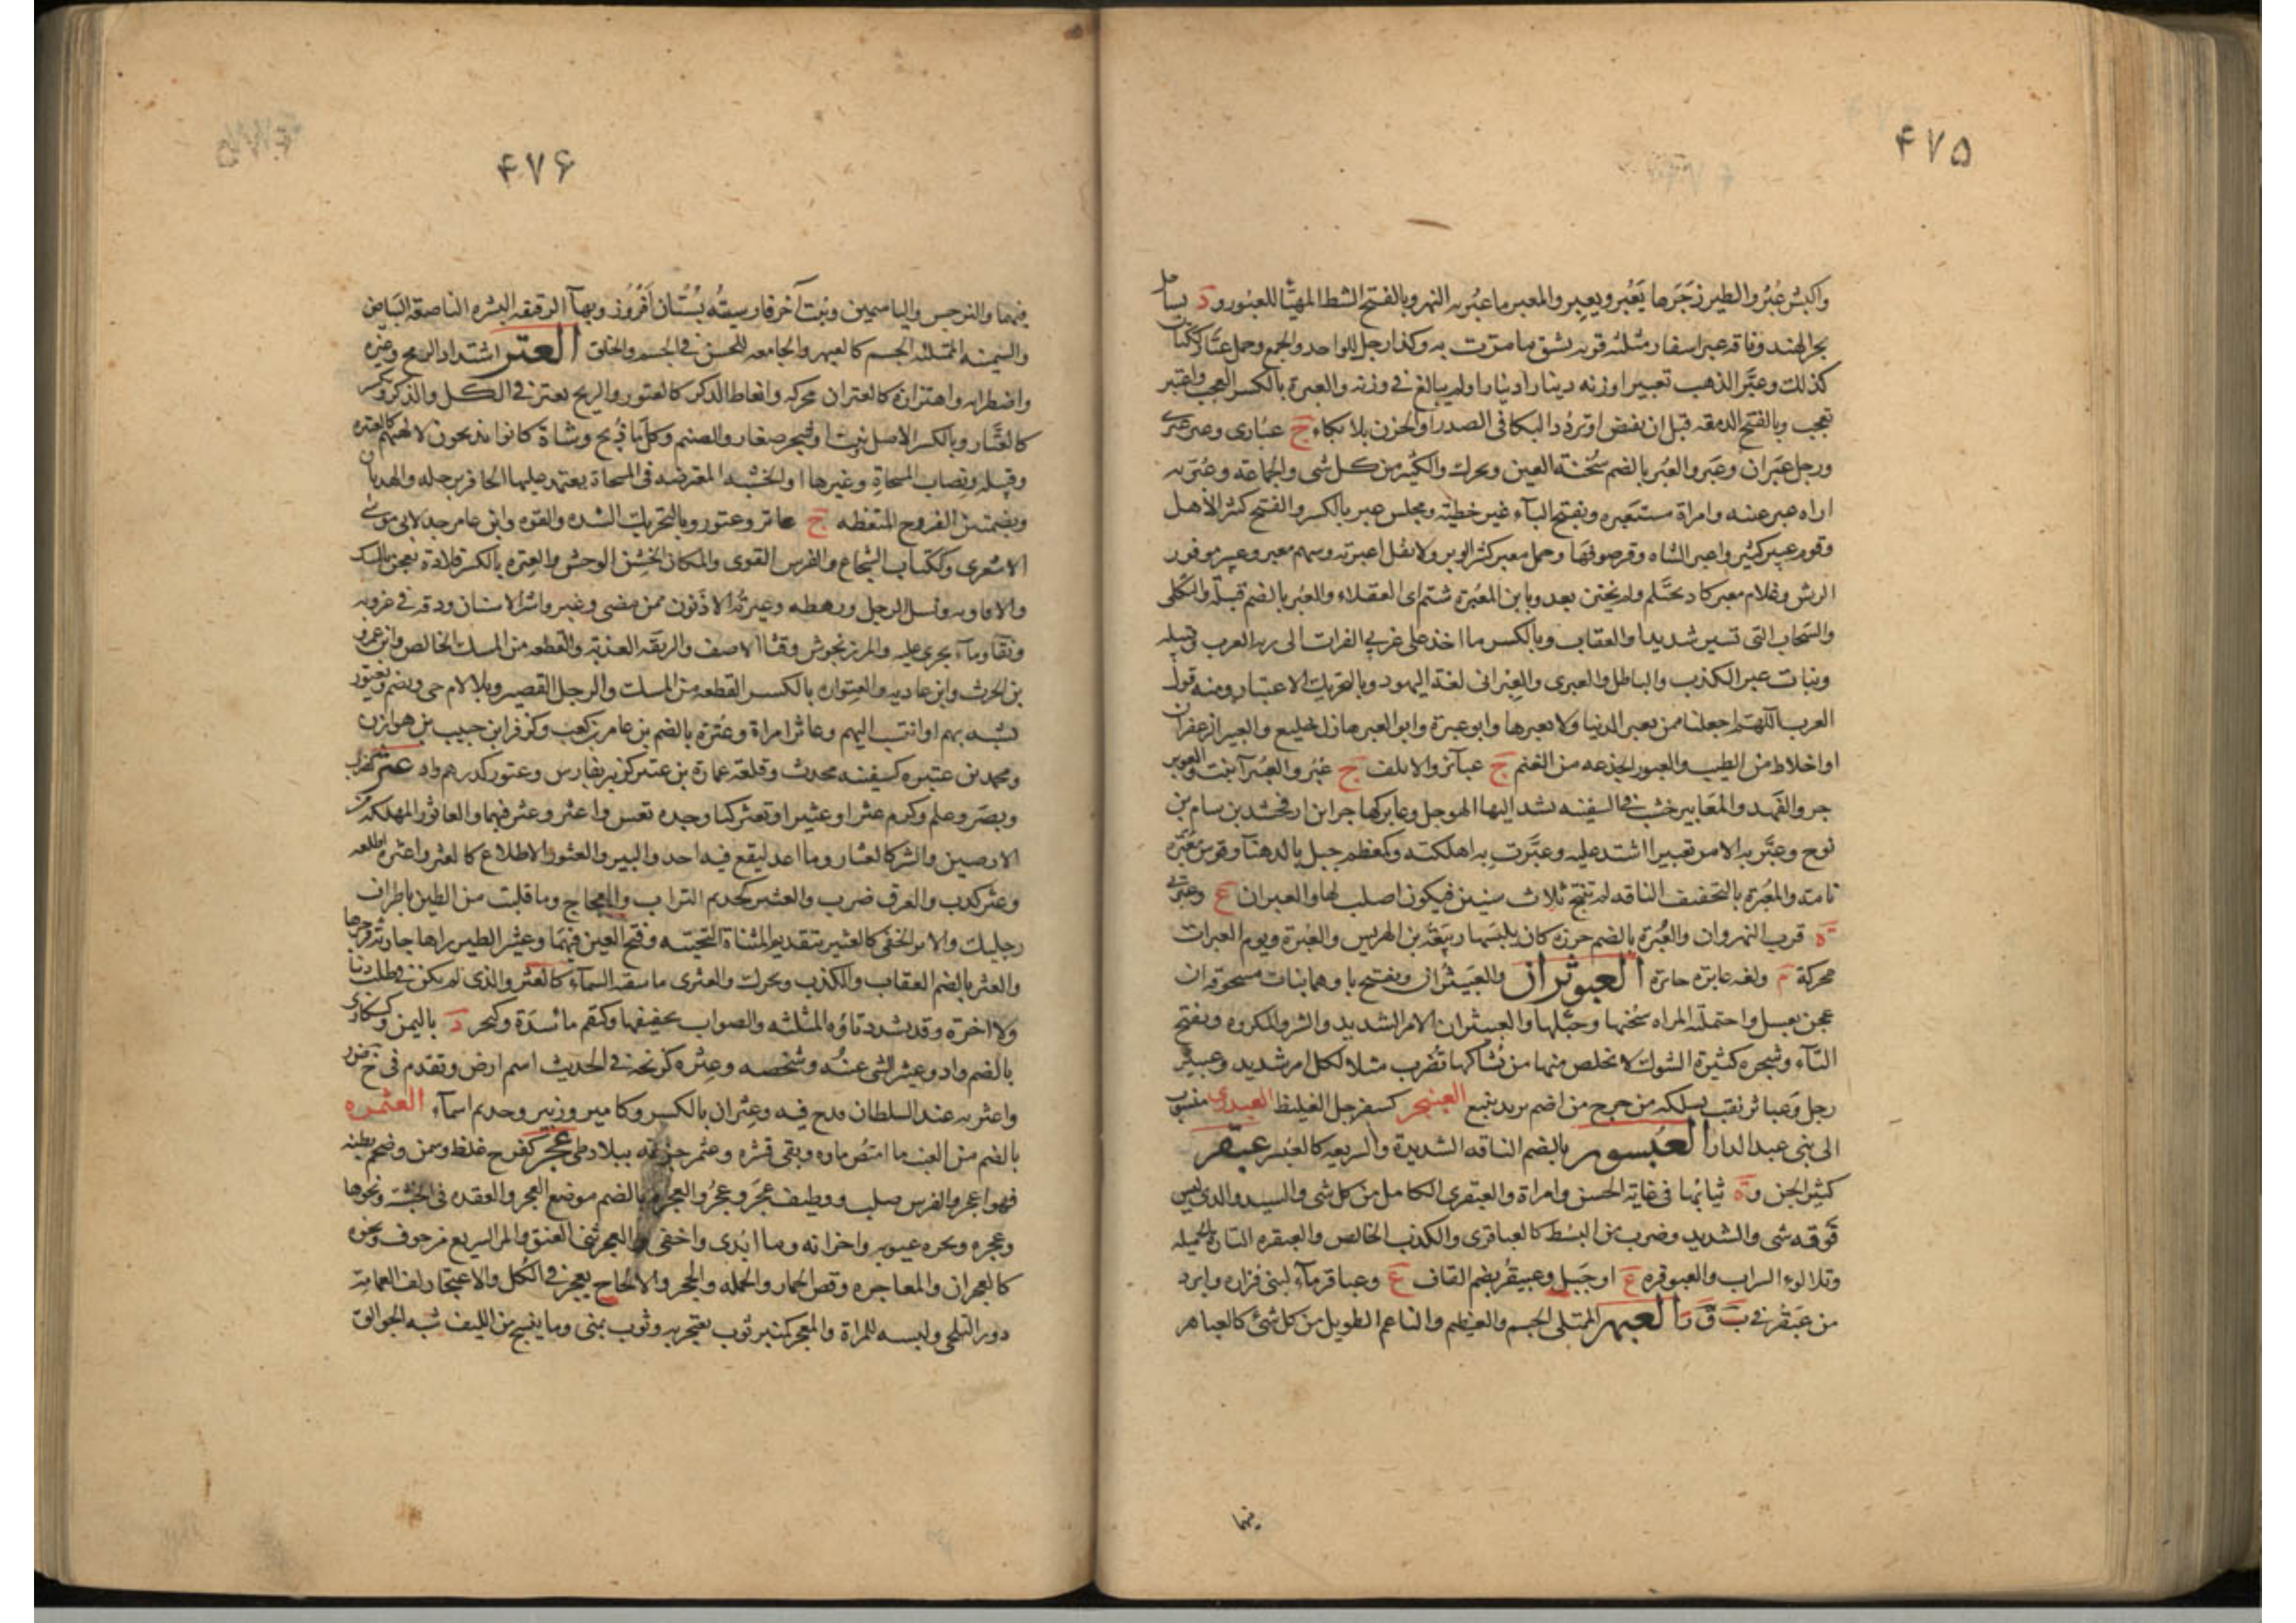 ۴۷۵
واكبش عُبْرٌ والطير زَجَرَها يَعْبُر ويعبِر والمعبر ما عبر به النهر وبالفتح الشط المهيّأ للعبور و د بساحل
بحر الهند وناقة عبر اسفار مثلثه قويه تشق ما مرّت به وكذا رجل للواحد والجمع وجمل عبّار ككتان
كذلك وعبَّر الذهب تعبيرا وزنه دينارا دينارا ولم يبالغ فى وزنه والعبرة بالكسر العجب واعتبر
تعجب وبالفتح الدمعه قبل ان تفيض او تردُد البكا فى الصدر او الحزن بلا بكاء ج
ورجل عبران وعبر والعبر بالضم سُخنة العين ويحرك والكثير من كل شى والجماعه وعبّر به
اراه عبر عينه وامراة مستعبره وبفتح الباء غير حظيّة ومجلس عبر بالكسر والفتح كثير الأهل
وقوم عبير كثير واعبر الشاه وفر صوفها وجمل معبر كثير الوبر ولا تقل اعبرته وسهم معبر وعبير موفور
الريش وغلام معبر كاد يحتلم ولم يختن بعد ويا بن المعبرة شتم اى العفلاء والعبر بالضم قبيلة والثكلى
والسحاب التى تسير شديدا والعقاب وبالكسر ما اخذ على غربي الفرات الى بريه العرب وقبيله
وبنات عبر الكذب والباطل والعبرى والعبرانى لغة اليهود وبالتحريك الاعتبار ومنه قول
العرب اللهم اجعلنا ممن يعبر الدنيا ولا يعبرها وابو عبرة وابو العبر هازل خليع والعبير الزعفران
او اخلاط من الطيب والعبور الجذعه من الغنم ج عبائر والاقلف ج عبر والعبيراء نبت والعوبر
جرو الفهد والمعابير خشب فى السفينه تشد اليها الهوجل وعابر كهاجر ابن ارفخشد بن سام بن
نوح وعبَّر به الامر تعبيرا اشتد عليه وعبّرت به اهلكته وكمعظم جبل بالدهنا وقوس معبّرة
تامة والمعبرة بالتخفيف الناقه لم تنتج ثلاث سنين فيكون اصلب لها والعبران ع
ة قرب النهروان والعبرة بالضم خرزه كان يلبسها ربيعة بن الحريش والعبرة ويوم العبرات
محركة م ولغه عابره جائزه العبوثران والعبيثران وتفتح ثاؤهما نبات مسحوقه ان
عجن بعسل واحتملته المراه سخنها وحبّلها والعبيثران الامر الشديد والشر والمكروه وبفتح
الثاء وشجره كثيرة الشوك لا يخلص منها من شاكها تضرب مثلا لكل امر شديد وعبيثر
رجل وعباثر نقب يسلكه من خرج من اضم يريد ينبع العبنجر كسفرجل الغليظ العبدرى منسوب
الى بنى عبد الدار العبسور بالضم الناقه الشديدة والسريعه كالعبسر عبقر ع
كثير الجن و ة ثيابها فى غاية الحسن وامراة والعبقرى الكامل من كل شى والسيد والذى ليس
فوقه شى والشديد وضرب من البسط كالعباقرى والكذب الخالص والعبقره التارة الجميله
وتلالوء السراب والعبوقره ع او جبل وعبيقر بضم القاف ع وعباقر ماء لبنى فزاره وابرد
من عبقر فى ب ق ر العبهر الممتلى الجسم والعظيم والناعم الطويل من كل شئ كالعباهر
فيهما
۴۷۶
فيهما والنرجس والياسمين ونبت آخر فارسيته بستان افروز وبهاء الرقيقه البشره الناصعة البياض
والسمينه الممتلئه الجسم كالعبهر والجامعه للحسن فى الجسم والخلق العتر اشتداد الرمح وغيره
واضطرابه واهتزازه كالعتران محركه وانعاظ الذكر كالعتور والذبح يعتر فى الكل والذكر ويكسر
كالعتّار وبالكسر الاصل ونبت او شجر صغار والصنم وكل ما ذبح وشاة كانوا يذبحون لآلهتهم كالعتيره
وقبيله ونصاب المسحاة وغيرها او الخشبه المعترضه فى المسحاة يعتمد عليها الحافر برجله والهذيان
وبضمتين الفروج المنعظه ج عاتر وعتور وبالتحريك الشده والقوه وابن عامر جد لابى موسى
الاشعرى وككتاب الشجاع والفرس القوى والمكان الخشن الوحش والعتره بالكسر قلادة تعجن بالمسك
والافاويه ونسل الرجل ورهطه وعشيرته الادنون ممن مضى وغبر واشر الاسنان ودقه فى غروبه
ونقا وماء يجرى عليه والمرزنجوش وقثاء الاصف والريقه العذبة والقطعه من المسك الخالص وابن عمرو
بن الحرث وابن عاديه والعتواره بالكسر القطعه من المسك والرجل القصير وبلا لام حى ويضم وتعتور
تشبه بهم او انتسب اليهم وعاتر امراة وعترة بالضم بن عامر بن كعب وكزفر ابن حبيب بن هوازن
ومحمد بن عتيره كسفينه محدث وقلعة عمارة بن عتير كزبير بفارس وعتور كدرهم واد عثر كضرب
ونصر وعلم وكرم عثرا وعثيرا وتعثر كبا وجده تعس واعثره وعثر فيهما والعاثور المهلكه من
الارضين والشر كالعثار وما اعد ليقع فيه احد والبير والعثور الاطلاع كالعثر واعثره اطلعه
وعثر كذب والعرق ضرب والعثير كحذيم التراب والعجاج وما قلبت من الطين باطراف
رجليك والاثر الخفى كالعيثر بتقديم المثناة التحتيه وفتح العين فيهما وعيثر الطير راها جارية فزجرها
والعثر بالضم العقاب والكذب ويحرك والعثرى ما سقته السماء كالعثر والذى لم يكن فى طلب دنيا
ولا اخرة وقد تشدد ثاؤه المثلثه والصواب تخفيفها وكبقم مأسدة وكبحر د باليمن وكسكارى
بالضم واد وعيثر الشى عينه وشخصه وعثره كزنخه فى الحديث اسم ارض وتقدم فى خ ض ر
واعثر به عند السلطان قدح فيه وعثران بالكسر وكامير وزبير وحذيم اسماء العثمره
بالضم من العنب ما امتص ماؤه وبقى قشره وعثمر ببلاد طى عجر كفرح غلظ وسمن وضخم بطنه
فهو اعجر والفرس صلب ووظيف عجر وعجر والعجره بالضم موضع العجر والعقده فى الخشبة ونحوها
وعجره وبجره عيوبه واحزانه وما ابدى واخفى والعجر ثنى العنق والمر السريع من خوف ونحوه
كالعجران والمعاجره وقمص الحمار والحمله والحجر والالحاح يعجر فى الكل والاعتجار لف العمامة
دون التلحى ولبسه للمراة والمعجر كمنبر ثوب تعتجر به وثوب يمنى وما ينسج من الليف شبه الجوالق